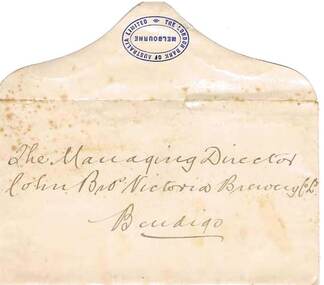 THE LONDON BANK OF AUSTRALIA LIMITED
MELBOURNE
The Managing Director
Cohn Bros Victoria Brewery Co Ld
Bendigo